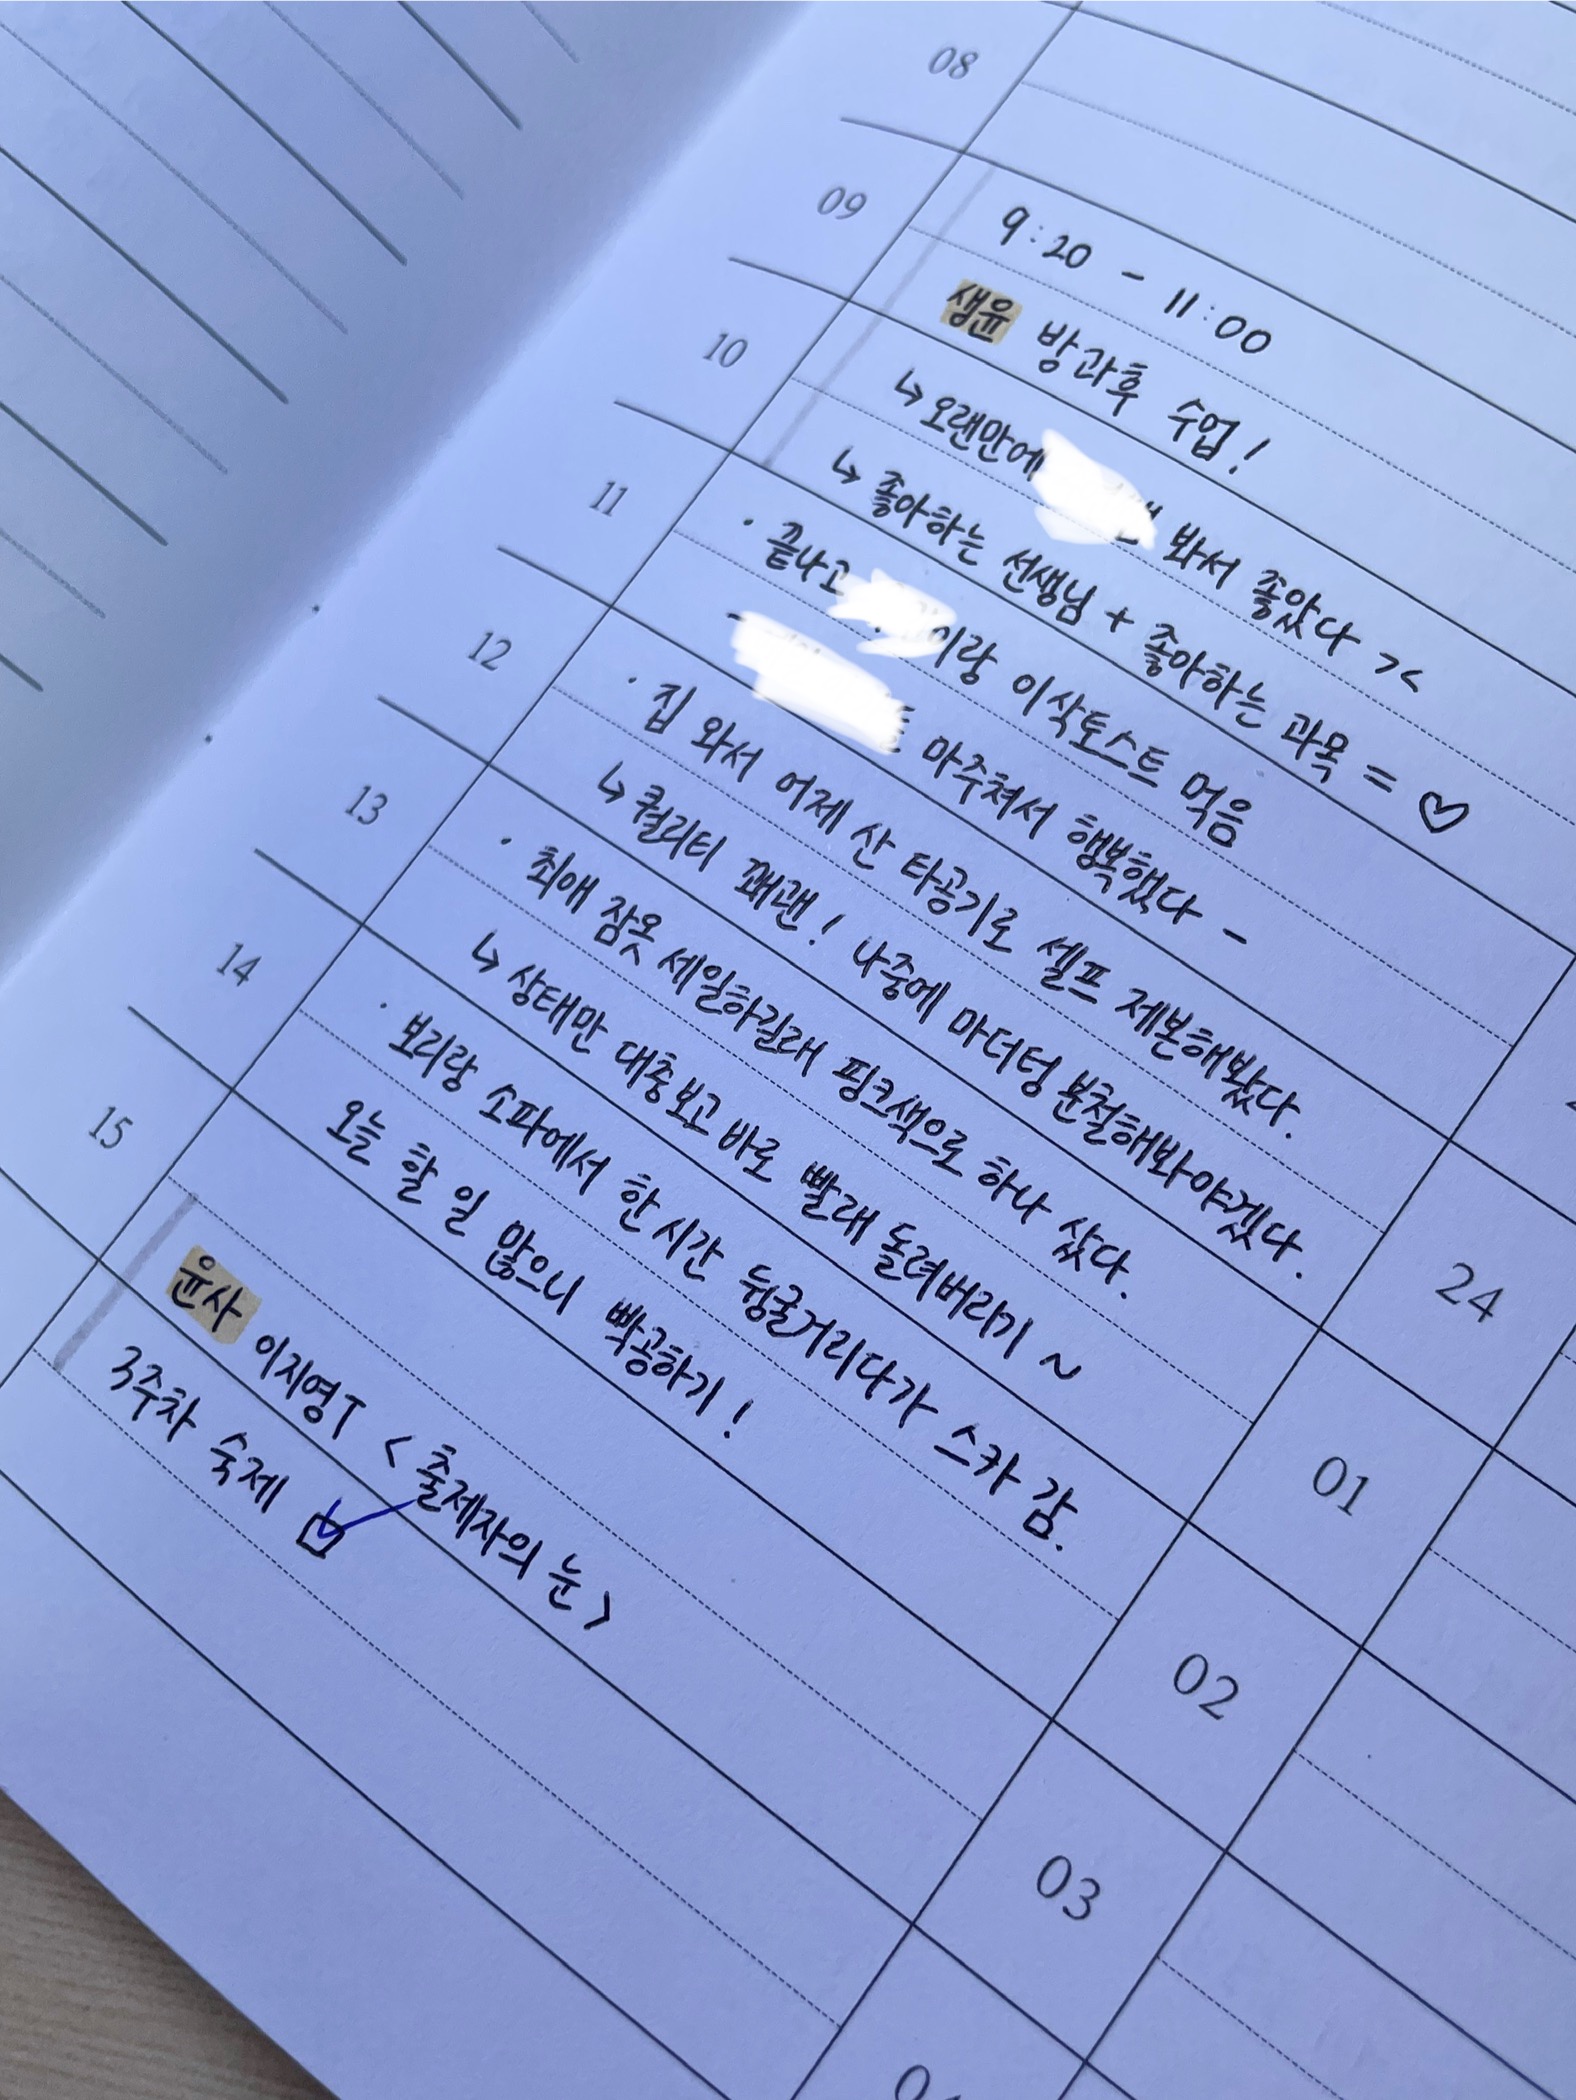 08
09
9:20 - 11:00
생윤 방과후 수업!
10
↳ 오랜만에 봐서 좋았다 ><
↳ 좋아하는 선생님 + 좋아하는 과목 = ♡
11
· 끝나고 이랑 이삭토스트 먹음
- 마주쳐서 행복했다 -
12
· 집 와서 어제 산 타공기로 셀프 제본해봤다.
↳ 퀄리티 꽤괜! 나중에 마더텅 분철해봐야겠다.
13
· 최애 잠옷 세일하길래 핑크색으로 하나 샀다.
↳ 상태만 대충보고 바로 빨래 돌려버리기 ~
14
· 보리랑 소파에서 한 시간 뒹굴거리다가 스카 감.
오늘 할 일 많으니 빡공하기!
15
윤사 이지영T <출제자의 눈>
3주차 숙제
24
01
02
03